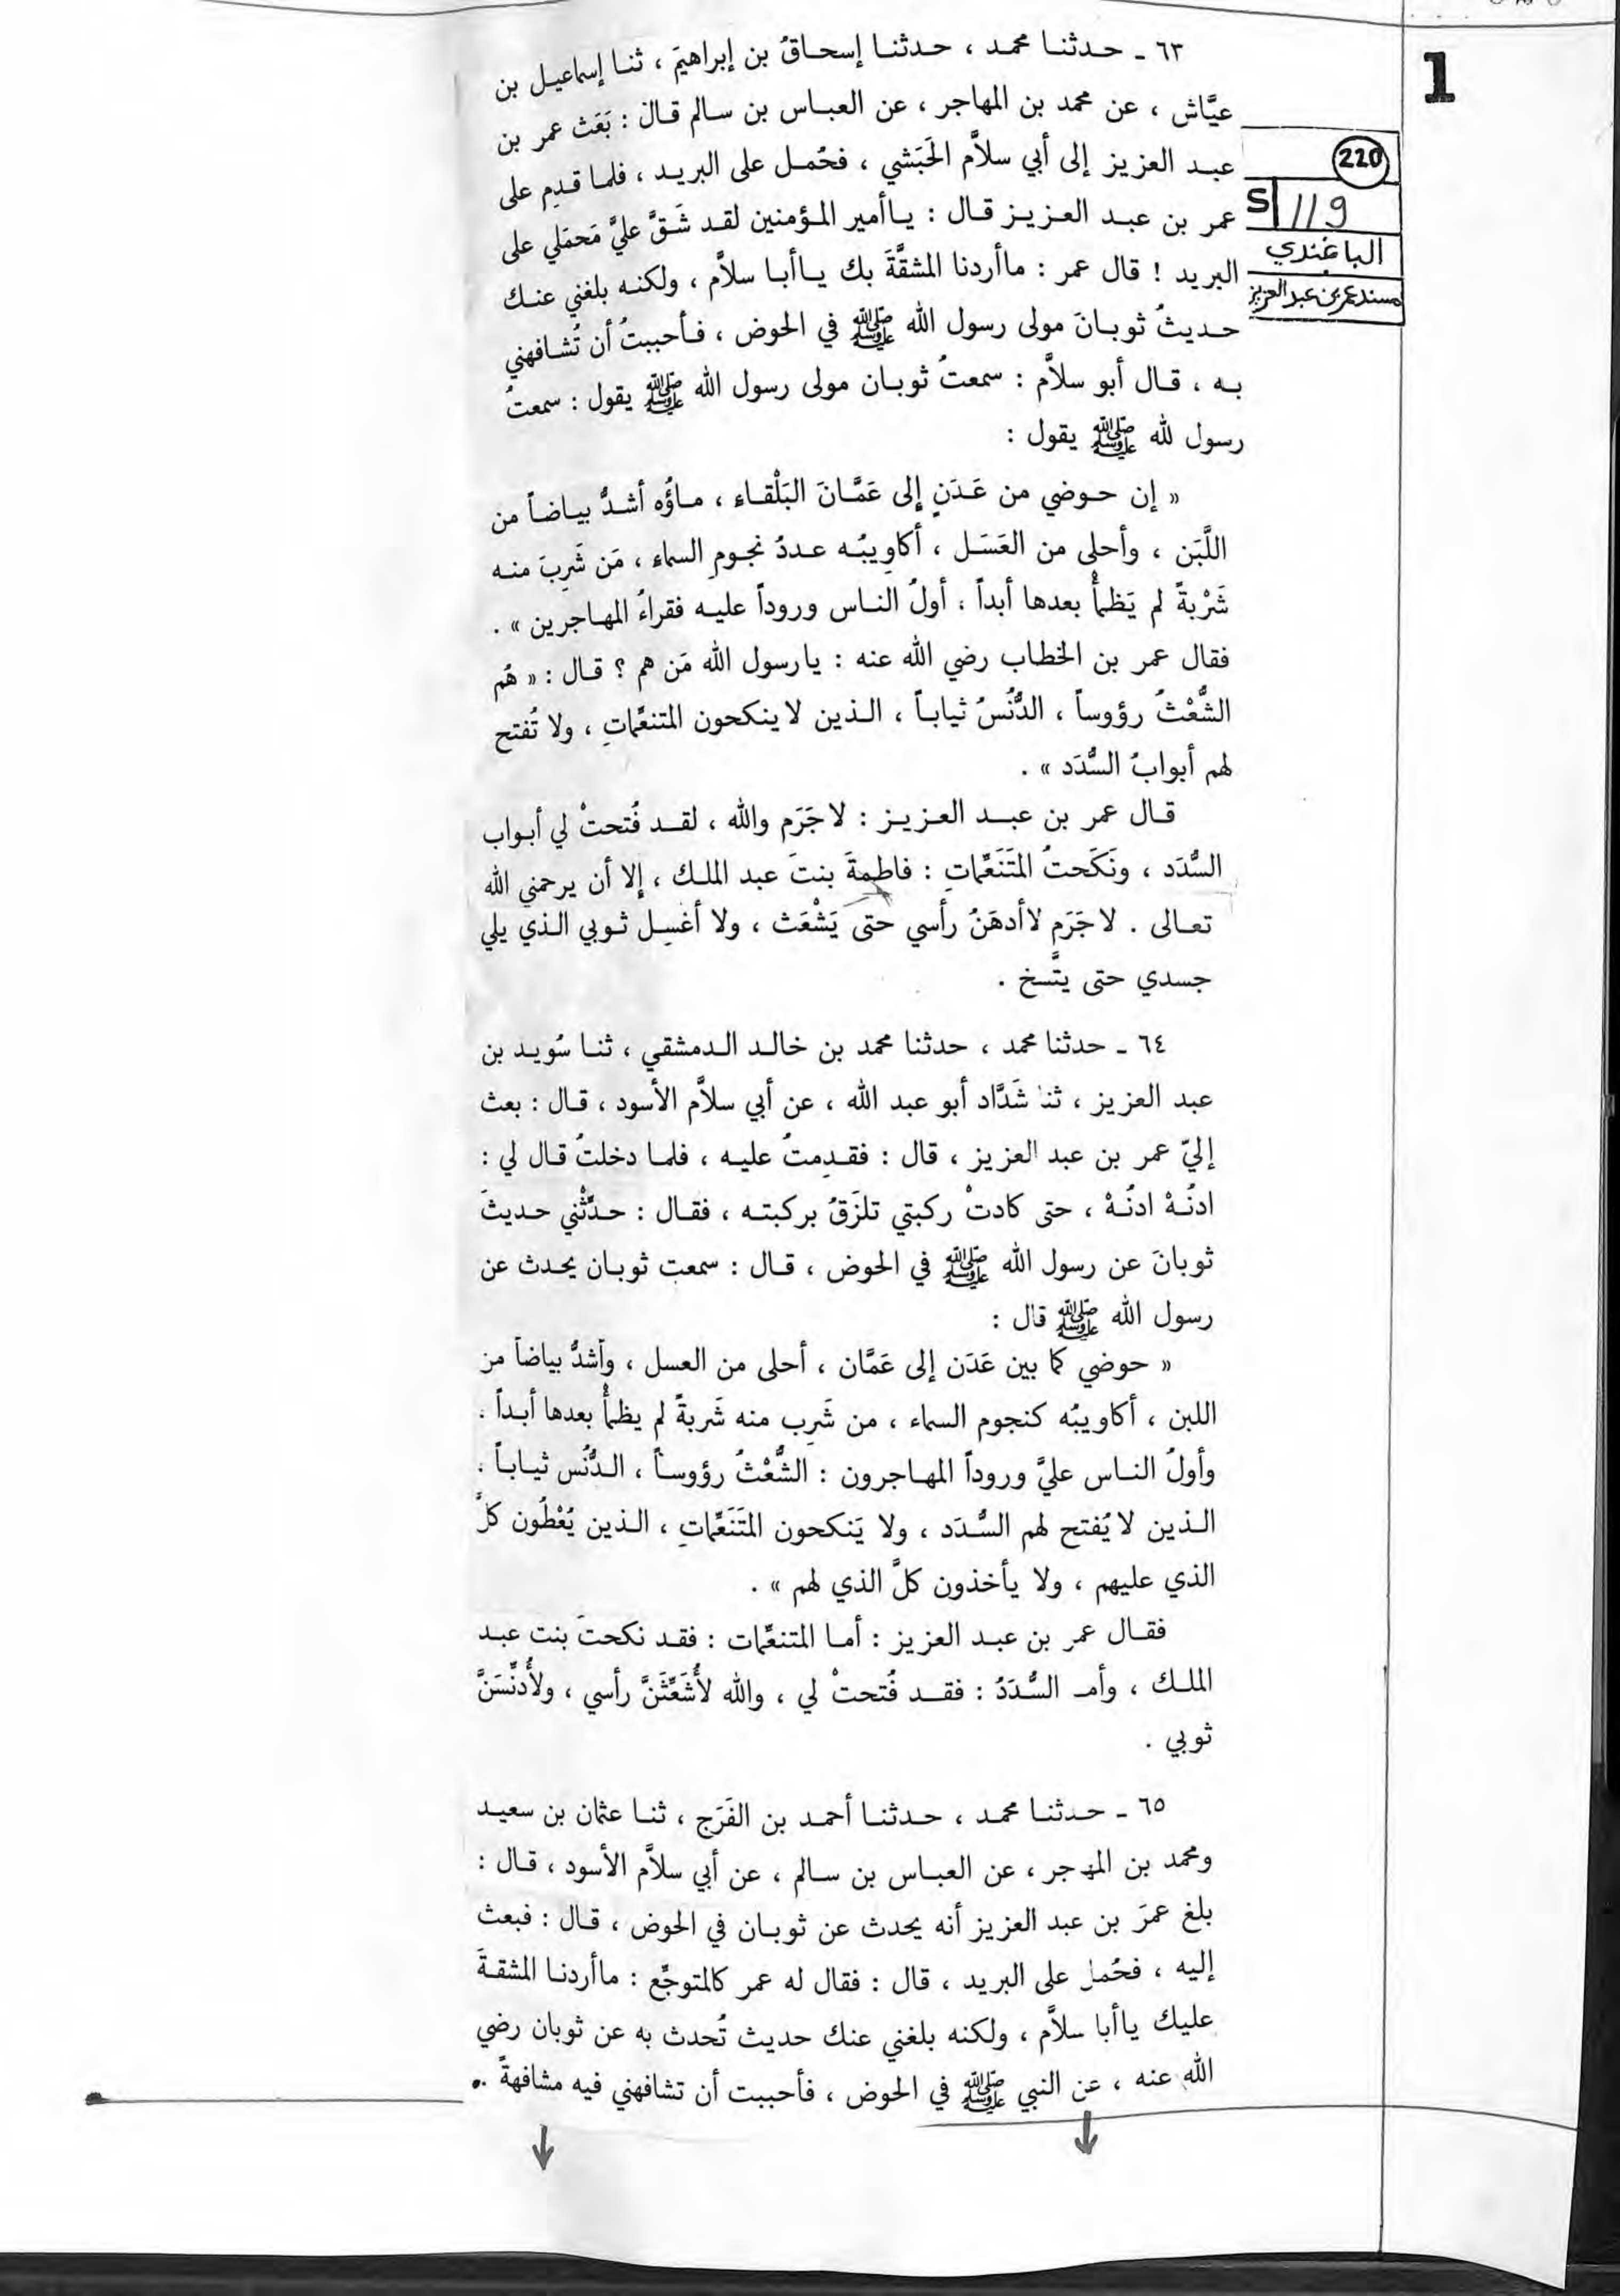 1
220
S 119
الباغندي
مسند عمر بن عبد العزيز
٦٣ ـ حدثنا محمد ، حدثنا إسحاقُ بن إبراهيمَ ، ثنا إسماعيل بن
عيَّاش ، عن محمد بن المهاجر ، عن العباس بن سالم قال : بَعَث عمر بن
عبد العزيز إلى أبي سلاَّم الحَبَشي ، فحُمل على البريد ، فلما قدِم على
عمر بن عبد العزيز قال : ياأمير المؤمنين لقد شَقَّ عليَّ مَحمَلي على
البريد ! قال عمر : ماأردنا المشقَّةَ بك ياأبا سلاَّم ، ولكنه بلغني عنك
حديثُ ثوبانَ مولى رسول الله ﷺ في الحوض ، فأحببتُ أن تُشافهني
به ، قال أبو سلاَّم : سمعتُ ثوبان مولى رسول الله ﷺ يقول : سمعتُ
رسول لله ﷺ يقول :
« إن حوضي من عَدَنٍ إلى عَمَّانَ البَلْقاء ، ماؤُه أشدُّ بياضاً من
اللَّبَن ، وأحلى من العَسَل ، أكاوِيبُه عددُ نجومِ السماء ، مَن شَرِبَ منه
شَرْبةً لم يَظمأْ بعدها أبداً ، أولُ الناس وروداً عليه فقراءُ المهاجرين » .
فقال عمر بن الخطاب رضي الله عنه : يارسول الله مَن هم ؟ قال : « هُم
الشُّعْثُ رؤوساً ، الدُّنُسُ ثياباً ، الذين لاينكحون المتنعِّماتِ ، ولا تُفتح
لهم أبوابُ السُّدَد » .
قال عمر بن عبد العزيز : لاجَرَم والله ، لقد فُتحتْ لي أبواب
السُّدَد ، ونَكَحتُ المتَنَعِّماتِ : فاطمةَ بنتَ عبد الملك ، إلا أن يرحمني الله
تعالى . لاجَرَم لاأدهَنُ رأسي حتى يَشْعَث ، ولا أغسِل ثوبي الذي يلي
جسدي حتى يتَّسخ .
٦٤ ـ حدثنا محمد ، حدثنا محمد بن خالد الدمشقي ، ثنا سُويد بن
عبد العزيز ، ثنا شَدَّاد أبو عبد الله ، عن أبي سلاَّم الأسود ، قال : بعث
إليّ عمر بن عبد العزيز ، قال : فقدِمتُ عليه ، فلما دخلتُ قال لي :
ادنُهْ ادنُهْ ، حتى كادتْ ركبتي تلزَقُ بركبته ، فقال : حدِّثْني حديثَ
ثوبانَ عن رسول الله ﷺ في الحوض ، قال : سمعت ثوبان يحدث عن
رسول الله ﷺ قال :
« حوضي كما بين عَدَن إلى عَمَّان ، أحلى من العسل ، وأشدُّ بياضاً من
اللبن ، أكاويبُه كنجوم السماء ، من شَرِب منه شَربةً لم يظمأْ بعدها أبداً .
وأولُ الناس عليَّ وروداً المهاجرون : الشُّعْثُ رؤوساً ، الدُّنُس ثياباً .
الذين لايُفتح لهم السُّدَد ، ولا يَنكحون المتَنَعِّماتِ ، الذين يُعْطُون كلَّ
الذي عليهم ، ولا يأخذون كلَّ الذي لهم » .
فقال عمر بن عبد العزيز : أما المتنعِّمات : فقد نكحتُ بنت عبد
الملك ، وأما السُّدَدُ : فقد فُتحتْ لي ، والله لأُشَعِّثَنَّ رأسي ، ولأُدنِّسَنَّ
ثوبي .
٦٥ ـ حدثنا محمد ، حدثنا أحمد بن الفَرَج ، ثنا عثمان بن سعيد
ومحمد بن المهاجر ، عن العباس بن سالم ، عن أبي سلاَّم الأسود ، قال :
بلغ عمرَ بن عبد العزيز أنه يحدث عن ثوبان في الحوض ، قال : فبعث
إليه ، فحُمل على البريد ، قال : فقال له عمر كالمتوجِّع : ماأردنا المشقةَ
عليك ياأبا سلاَّم ، ولكنه بلغني عنك حديث تُحدث به عن ثوبان رضي
الله عنه ، عن النبي ﷺ في الحوض ، فأحببت أن تشافهني فيه مشافهةً .